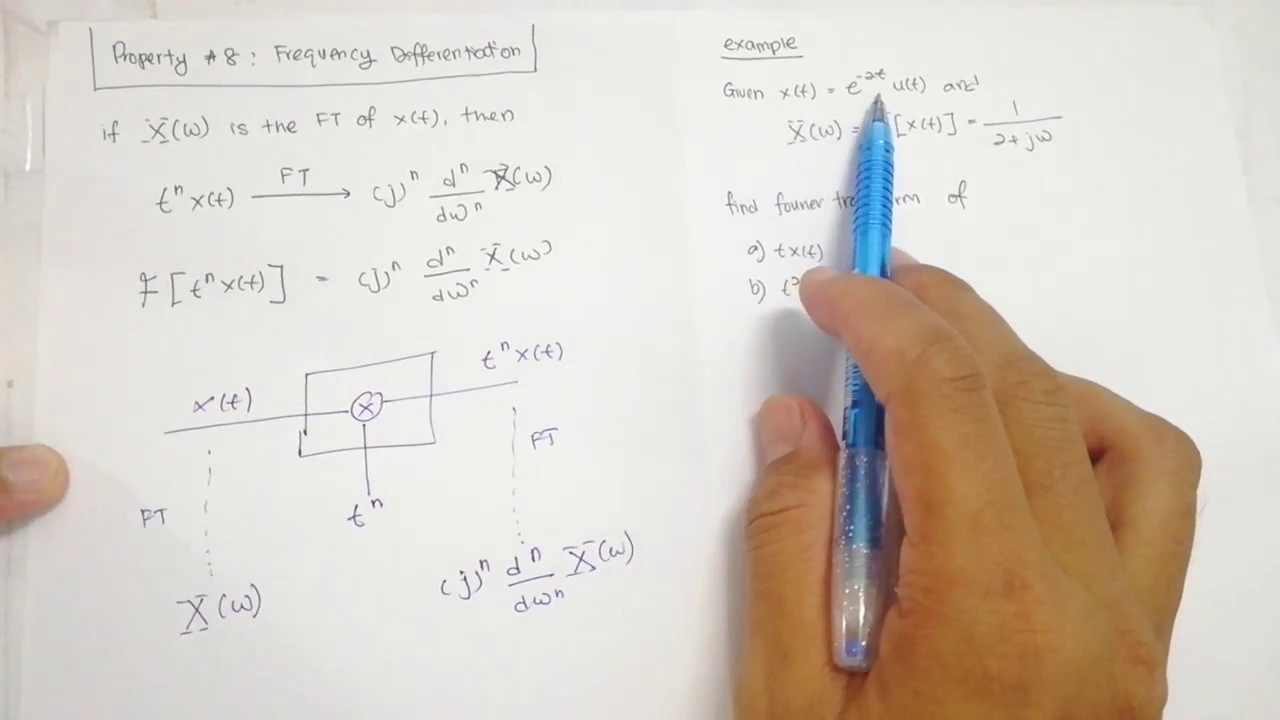 Property #8: Frequency Differentiation
if X(ω) is the FT of x(t), then
tⁿ x(t) FT → (j)ⁿ dⁿ/dωⁿ X(ω)
F[tⁿ x(t)] = (j)ⁿ dⁿ/dωⁿ X(ω)
x(t) ⓧ tⁿ x(t)
tⁿ
FT FT
X(ω) (j)ⁿ dⁿ/dωⁿ X(ω)
example
Given x(t) = e^-2t u(t) and
X(ω) = [x(t)] = 1/(2+jω)
find fourier of
a) t x(t)
b)